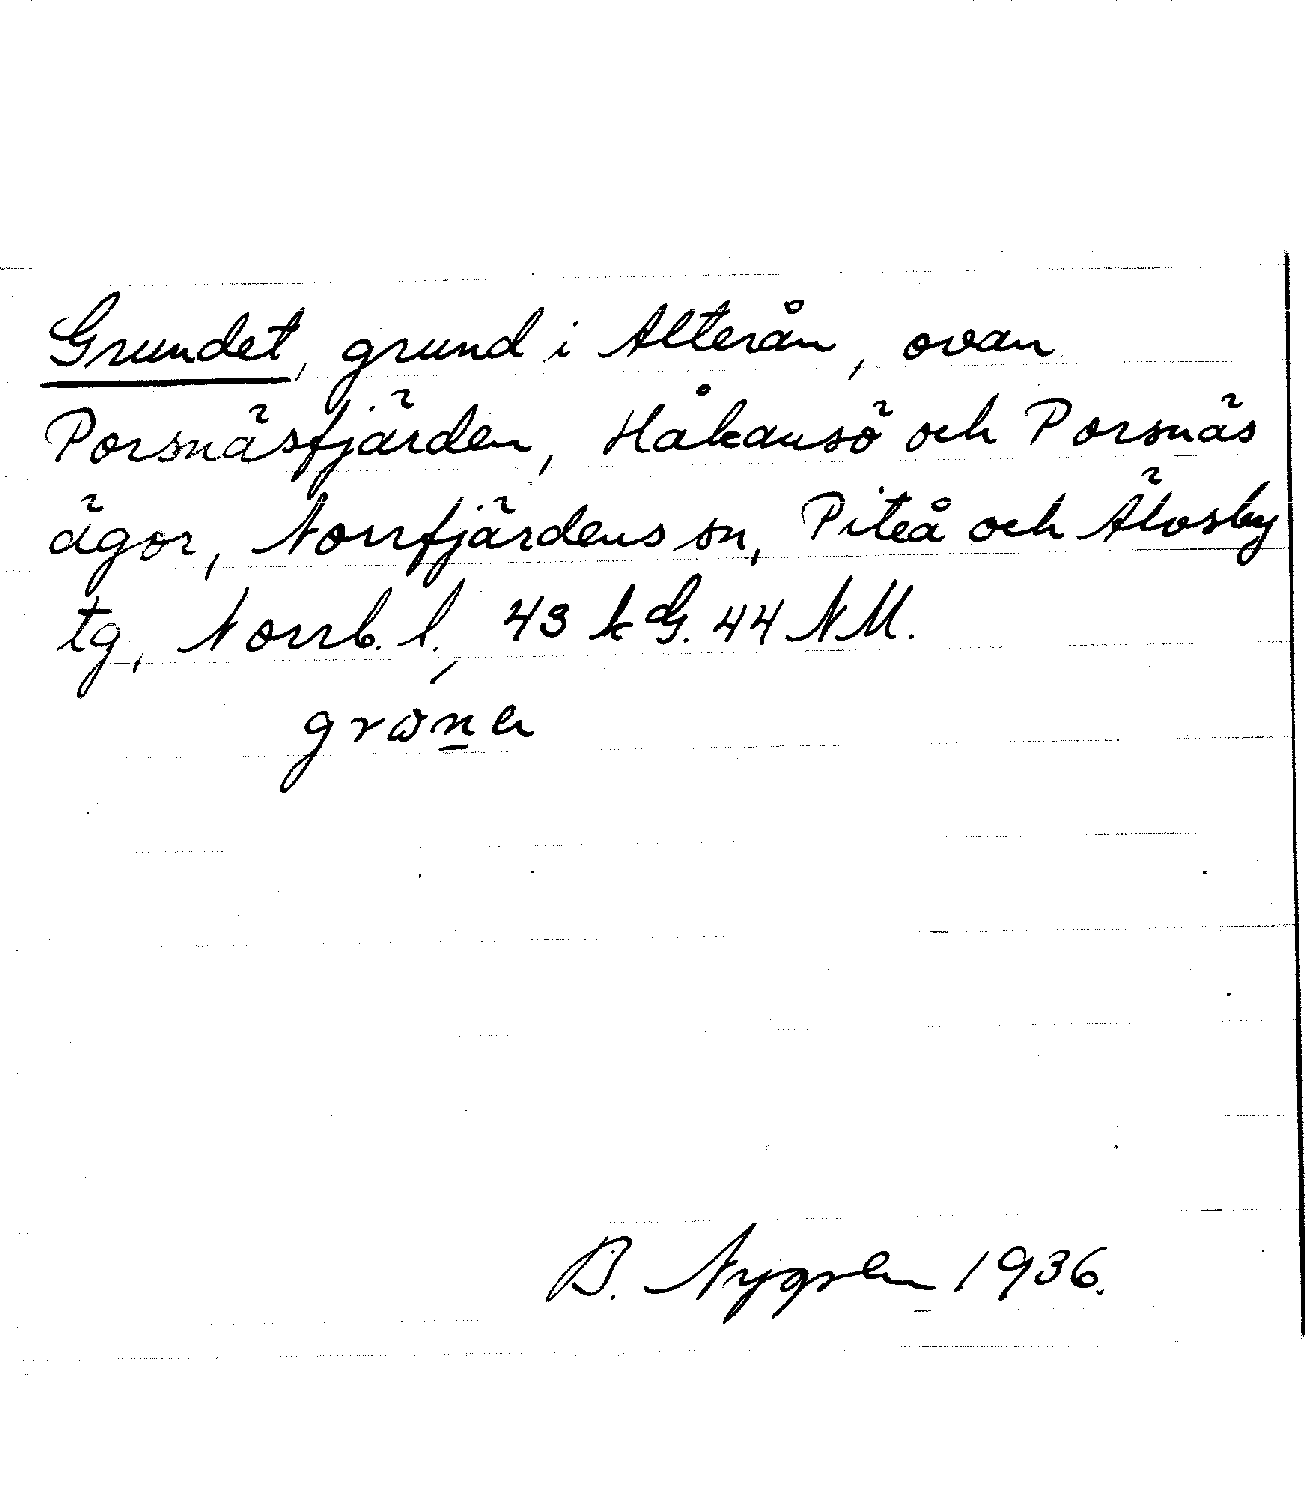 Grundet, grund i Alterån, ovan
Porsnäsfjärden, Håkansö och Porsnäs
ägor, Norrfjärdens sn, Piteå och Älvsby
tg, Norrb. l., 43 k G. 44 NM.
B. Nygren 1936.